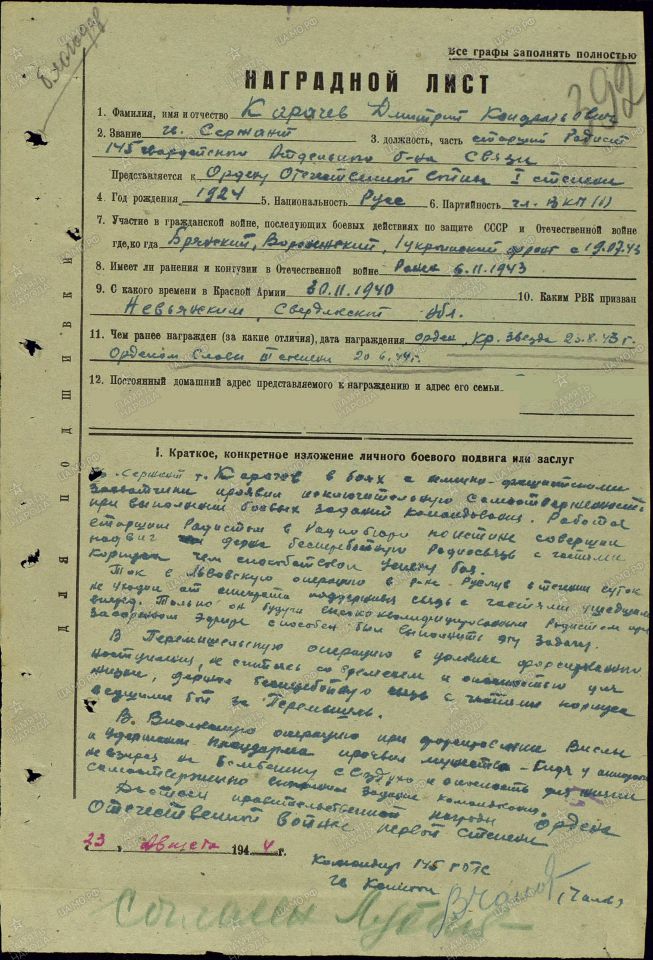 292
Все графы заполнять полностью
НАГРАДНОЙ ЛИСТ
1. Фамилия, имя и отчество Карачев Дмитрий Кондратьевич
2. Звание гв. Сержант 3. должность, часть старший Радист
145 гвардейского Отдельного б-на Связи
Представляется к Ордену Отечественной войны I степени
4. Год рождения 1924 5. Национальность Русс 6. Партийность чл. ВКП(б)
7. Участие в гражданской войне, последующих боевых действиях по защите СССР и Отечественной войне
где, когда Брянский, Воронежский, 1 украинский фронт с 19.07.43
8. Имеет ли ранения и контузии в Отечественной войне Ранен 6.11.1943
9. С какого времени в Красной Армии 30.11.1940 10. Каким РВК призван
Невьянским, Свердловской обл.
11. Чем ранее награжден (за какие отличия), дата награждения орден „Кр. Звезда 23.8.43 г.
Орденом Славы III степени 20.6.44 г.
12. Постоянный домашний адрес представляемого к награждению и адрес его семьи
ДЛЯ ПОДШИВКИ
I. Краткое, конкретное изложение личного боевого подвига или заслуг
Гв. Сержант т. Карачев в боях с немецко-фашистскими
захватчиками проявил исключительную самоотверженность
при выполнении боевых заданий командования. Работая
старшим Радистом в Радиобюро поистине совершил
подвиг держа бесперебойную Радиосвязь с частями
корпуса чем способствовал успеху боя.
Так в Львовскую операцию в р-не в течении суток
не уходил от аппарата поддерживая связь с частями ушедшими
вперед. Только он будучи высококвалифицированным Радистом при
засоренном эфире способен был выполнить эту задачу.
В Перемышльскую операцию в условиях форсированного
наступления, не считаясь со временем и опасностью для
жизни, держал бесперебойную связь с частями корпуса
ведущими бой за Перемышль.
В Висленскую операцию при форсировании Вислы
и удержании плацдарма проявил мужество - будучи у аппарата
не взирая на бомбежку с воздуха и опасность для жизни
самоотверженно выполнял задания командования.
Достоин правительственной награды ордена
Отечественной войны первой степени
„23„ Августа 1944 г.
Командир 145 гв ОБС
гв Капитан
Согласен